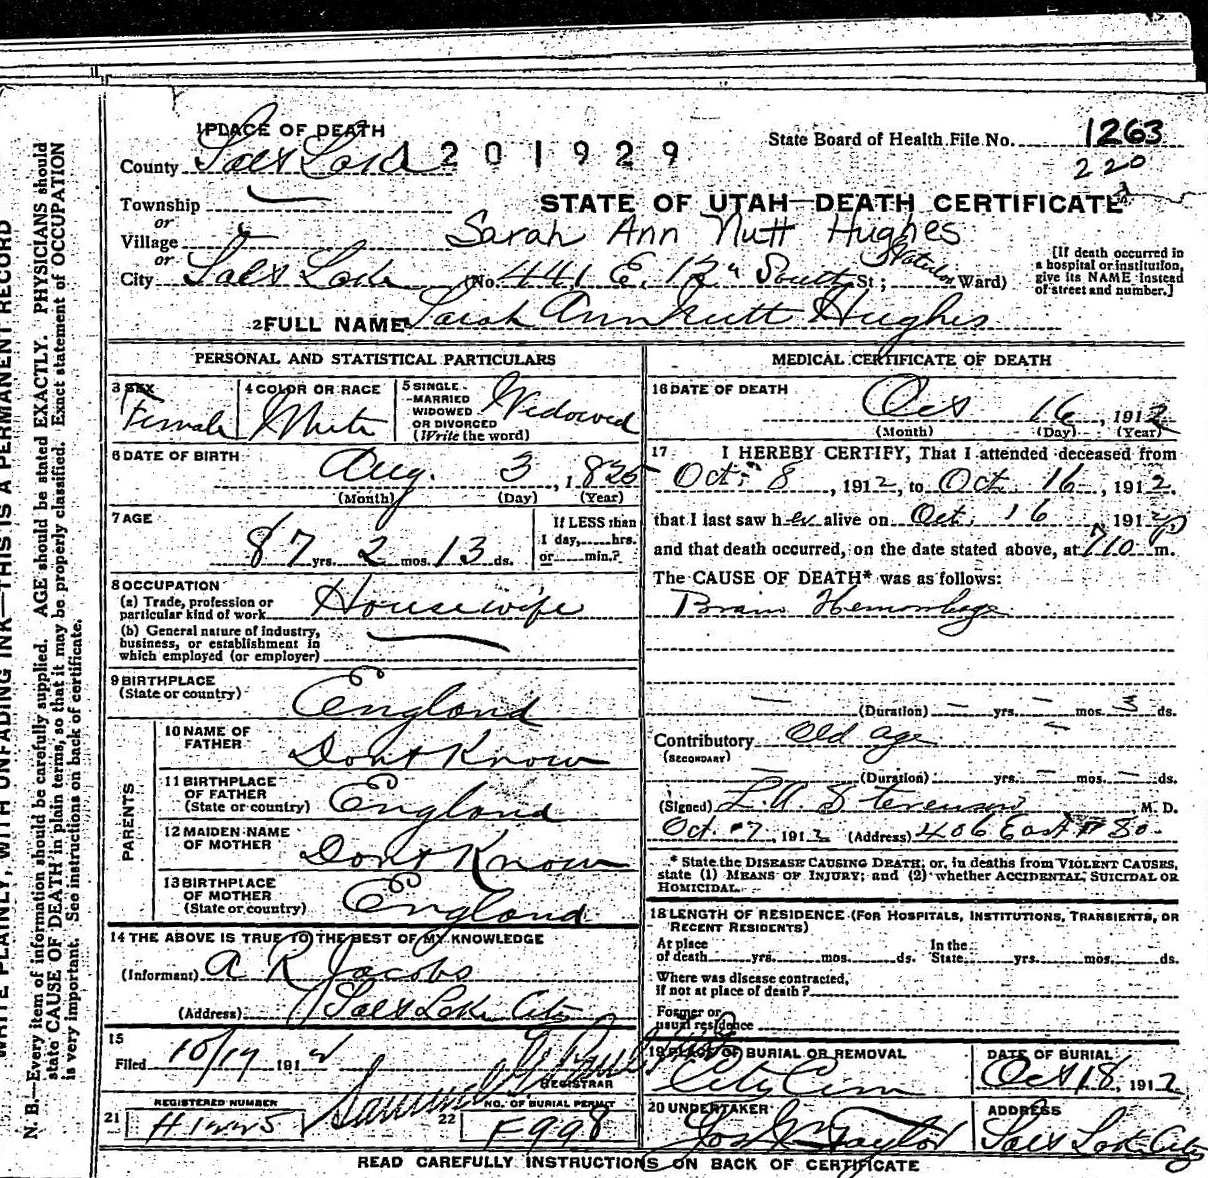 1 PLACE OF DEATH
State Board of Health File No. 1263
County Salt Lake 1201929
220
Township
STATE OF UTAH—DEATH CERTIFICATE
or
Village
Sarah Ann Nutt Hughes
or
City Salt Lake (No. 441 E. 12" South St; Waterloo Ward)
[If death occurred in
a hospital or institution,
give its NAME instead
of street and number.]
2 FULL NAME Sarah Ann Nutt Hughes
PERSONAL AND STATISTICAL PARTICULARS
3 SEX
Female
4 COLOR OR RACE
White
5 SINGLE
MARRIED
WIDOWED
OR DIVORCED
(Write the word)
Widowed
6 DATE OF BIRTH
Aug. 3, 1825
(Month) (Day) (Year)
7 AGE
87 yrs. 2 mos. 13 ds.
If LESS than
1 day, hrs.
or min.?
8 OCCUPATION
(a) Trade, profession or
particular kind of work Housewife
(b) General nature of industry,
business, or establishment in
which employed (or employer)
9 BIRTHPLACE
(State or country) England
PARENTS
10 NAME OF
FATHER Dont Know
11 BIRTHPLACE
OF FATHER
(State or country) England
12 MAIDEN NAME
OF MOTHER Dont Know
13 BIRTHPLACE
OF MOTHER
(State or country) England
14 THE ABOVE IS TRUE TO THE BEST OF MY KNOWLEDGE
(Informant) A R Jacobs
(Address) Salt Lake City
15
Filed 10/17 1912
REGISTRAR
REGISTERED NUMBER
21 H1225
NO. OF BURIAL PERMIT
22 F998
MEDICAL CERTIFICATE OF DEATH
16 DATE OF DEATH
Oct 16, 1912
(Month) (Day) (Year)
17 I HEREBY CERTIFY, That I attended deceased from
Oct. 8, 1912, to Oct. 16, 1912,
that I last saw her alive on Oct. 16 1912
and that death occurred, on the date stated above, at 710 p m.
The CAUSE OF DEATH* was as follows:
Brain Hemorrhage
(Duration) yrs. mos. 3 ds.
Contributory Old age
(SECONDARY)
(Duration) yrs. mos. ds.
(Signed) Stevenson M. D.
Oct. 1912 (Address) 406 East
* State the DISEASE CAUSING DEATH, or, in deaths from VIOLENT CAUSES,
state (1) MEANS OF INJURY; and (2) whether ACCIDENTAL, SUICIDAL OR
HOMICIDAL.
18 LENGTH OF RESIDENCE (FOR HOSPITALS, INSTITUTIONS, TRANSIENTS, OR
RECENT RESIDENTS)
At place
of death yrs. mos. ds.
In the
State yrs. mos. ds.
Where was disease contracted,
if not at place of death?
Former or
usual residence
19 PLACE OF BURIAL OR REMOVAL
City Cem
DATE OF BURIAL
Oct 18, 1912
20 UNDERTAKER
Jos Wm Taylor
ADDRESS
Salt Lake City
READ CAREFULLY INSTRUCTIONS ON BACK OF CERTIFICATE
WRITE PLAINLY, WITH UNFADING INK—THIS IS A PERMANENT RECORD
N. B.—Every item of information should be carefully supplied. AGE should be stated EXACTLY. PHYSICIANS should
state CAUSE OF DEATH in plain terms, so that it may be properly classified. Exact statement of OCCUPATION
is very important. See instructions on back of certificate.